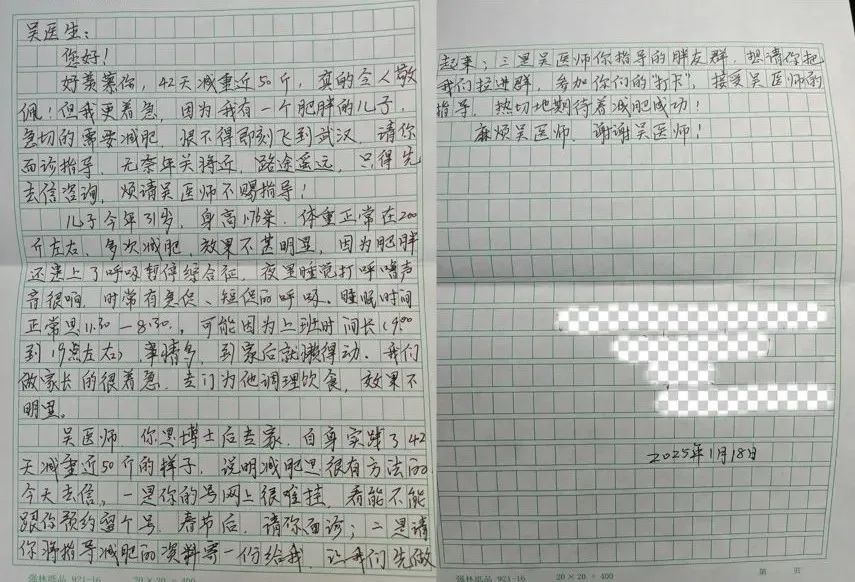 吴医生：
您好！
好羡慕你，42天减重近50斤，真的令人敬
佩！但我更着急，因为我有一个肥胖的儿子，
急切的需要减肥，恨不得即刻飞到武汉，请你
面诊指导，无奈年关将近，路途遥远，只得先
去信咨询，烦请吴医师不赐指导！
儿子今年31岁，身高1.76米，体重正常在200
斤左右，多次减肥，效果不甚明显，因为肥胖
还患上了呼吸暂停综合征，夜里睡觉打呼噜声
音很响，时常有急促、短促的呼吸。睡眠时间
正常是11:30—8:30，可能因为上班时间长（9:00
到19点左右），事情多，到家后就懒得动。我们
做家长的很着急，专门为他调理饮食，效果不
明显。
吴医师，你是博士后专家，自身实践了42
天减重近50斤的样子，说明减肥是很有方法的
今天去信，一是你的号网上很难挂，看能不能
跟你预约个号，春节后，请你面诊；二是请
你将指导减肥的资料寄一份给我，让我们先做
起来；三是吴医师你指导的胖友群，想请你把
我们拉进群，参加你们的“打卡”，接受吴医师的
指导，热切地期待着减肥成功！
麻烦吴医师，谢谢吴医师！
2025年1月18日
强林纸品 921-16 20×20=400
强林纸品 921-16 20×20=400 第 页